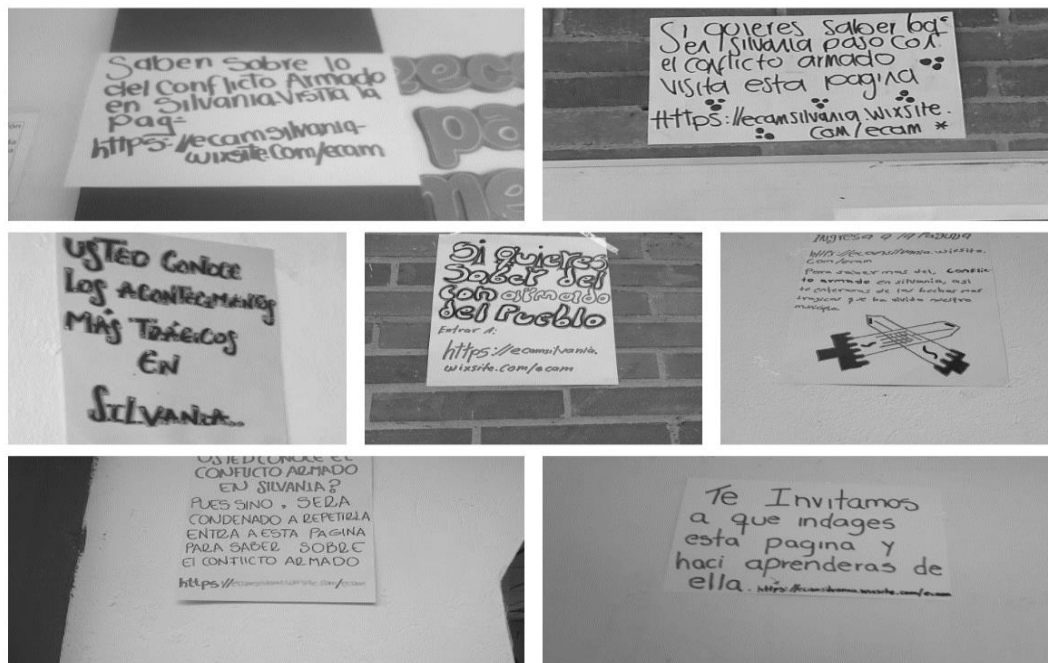 Saben Sobre lo
del Conflicto Armado
en Silvania. Visita la
Pag-
https://ecamsilvania-
wixsite.Com/ecam
eco
pa
ne
Si quieres saber
Sen Silvania paso con
el conflicto armado
visita esta pagina
Https://ecamsilvania.wixsite.
com/ecam *
USTED CONOCE
LOS ACONTECIMIENTOS
MÁS TRÁGICOS
EN
SILVANIA...
Si quieres
Saber del
con armado
del Pueblo
Entrar A:
https://ecamsilvania.
wixsite.com/ecam
Ingresa a la Pagina
https://ecamsilvania.wixsite.
Com/ecam
Para saber mas del, conflic
to armado en silvania, asi
te enteraras de los hechos mas
tragicos que ha vivido nuestro
municipio
USTED CONOCE EL
CONFLICTO ARMADO
EN SILVANIA?
PUES SINO, SERA
CONDENADO A REPETIRLA
ENTRA A ESTA PAGINA
PARA SABER SOBRE
El CONFLICTO ARMADO
https://ecamsilvania.wixsite.com/ecam
Te Invitamos
a que indages
esta pagina y
haci aprenderas de
ella. https://ecamsilvania.wixsite.com/ecam